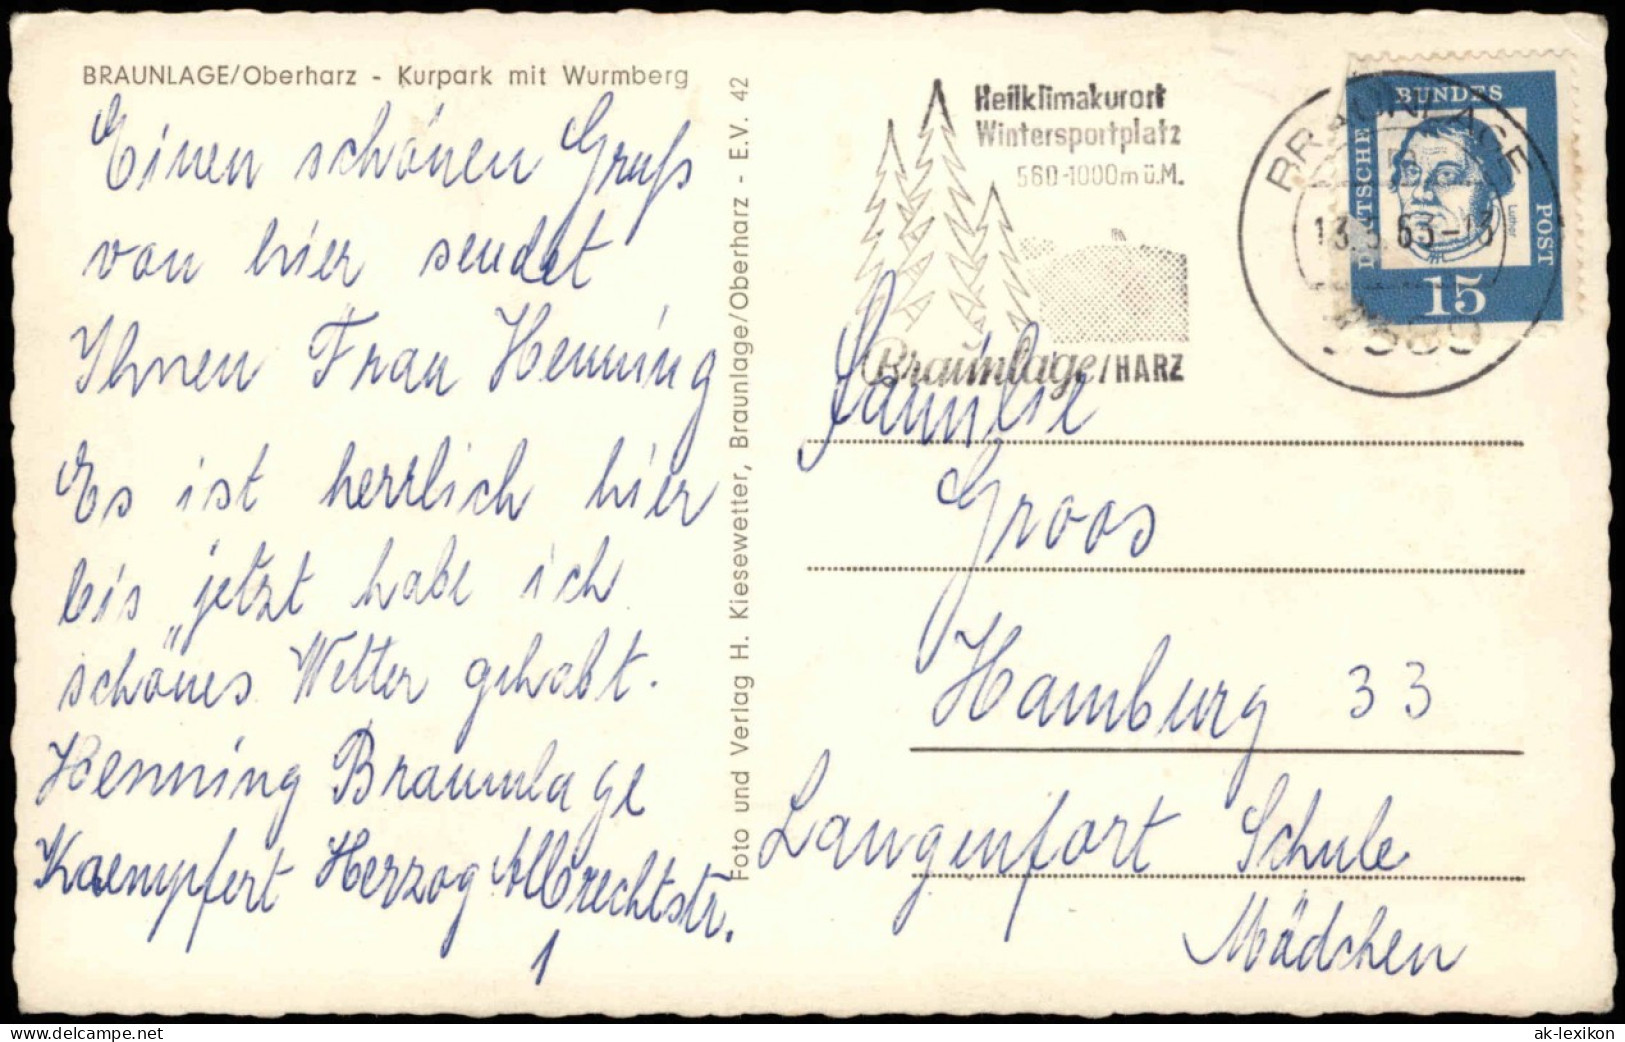 BRAUNLAGE/Oberharz - Kurpark mit Wurmberg
Einen schönen Gruß
von hier sendet
Ihnen Frau Henning
Es ist herrlich hier
bis jetzt habe ich
schönes Wetter gehabt.
Henning Braunlage
Kaempfert Herzog Albrechtstr.
1
Foto und Verlag H. Kiesewetter, Braunlage/Oberharz - E.V. 42
Heilklimakurort
Wintersportplatz
560-1000m ü.M.
Braunlage/HARZ
BRAUNLAGE
DEUTSCHE
BUNDES
POST
Luther
15
Familie
Groos
Hamburg 33
Langenfort Schule
Mädchen
www.delcampe.net
ak-lexikon